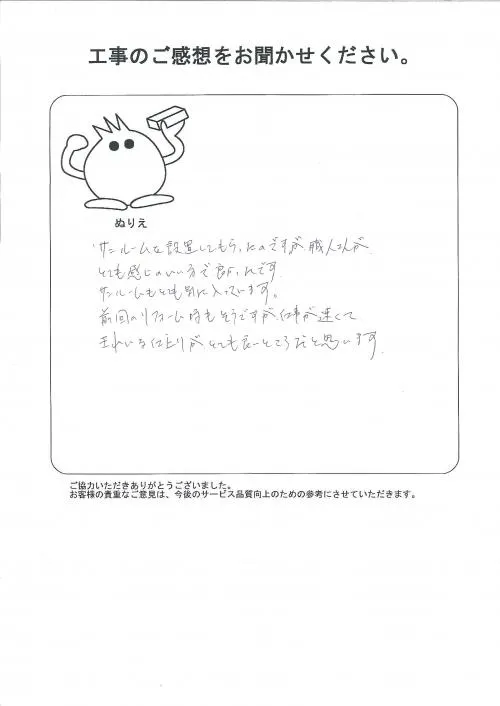 工事のご感想をお聞かせください。
ぬりえ
サンルームを設置してもらったのですが職人さんが
とても感じのいい方で良かったです。
サンルームもとても気に入っています。
前回のリフォーム時もそうですが仕事が速くて
きれいな仕上りがとても良いところだと思います。
ご協力いただきありがとうございました。
お客様の貴重なご意見は、今後のサービス品質向上のための参考にさせていただきます。